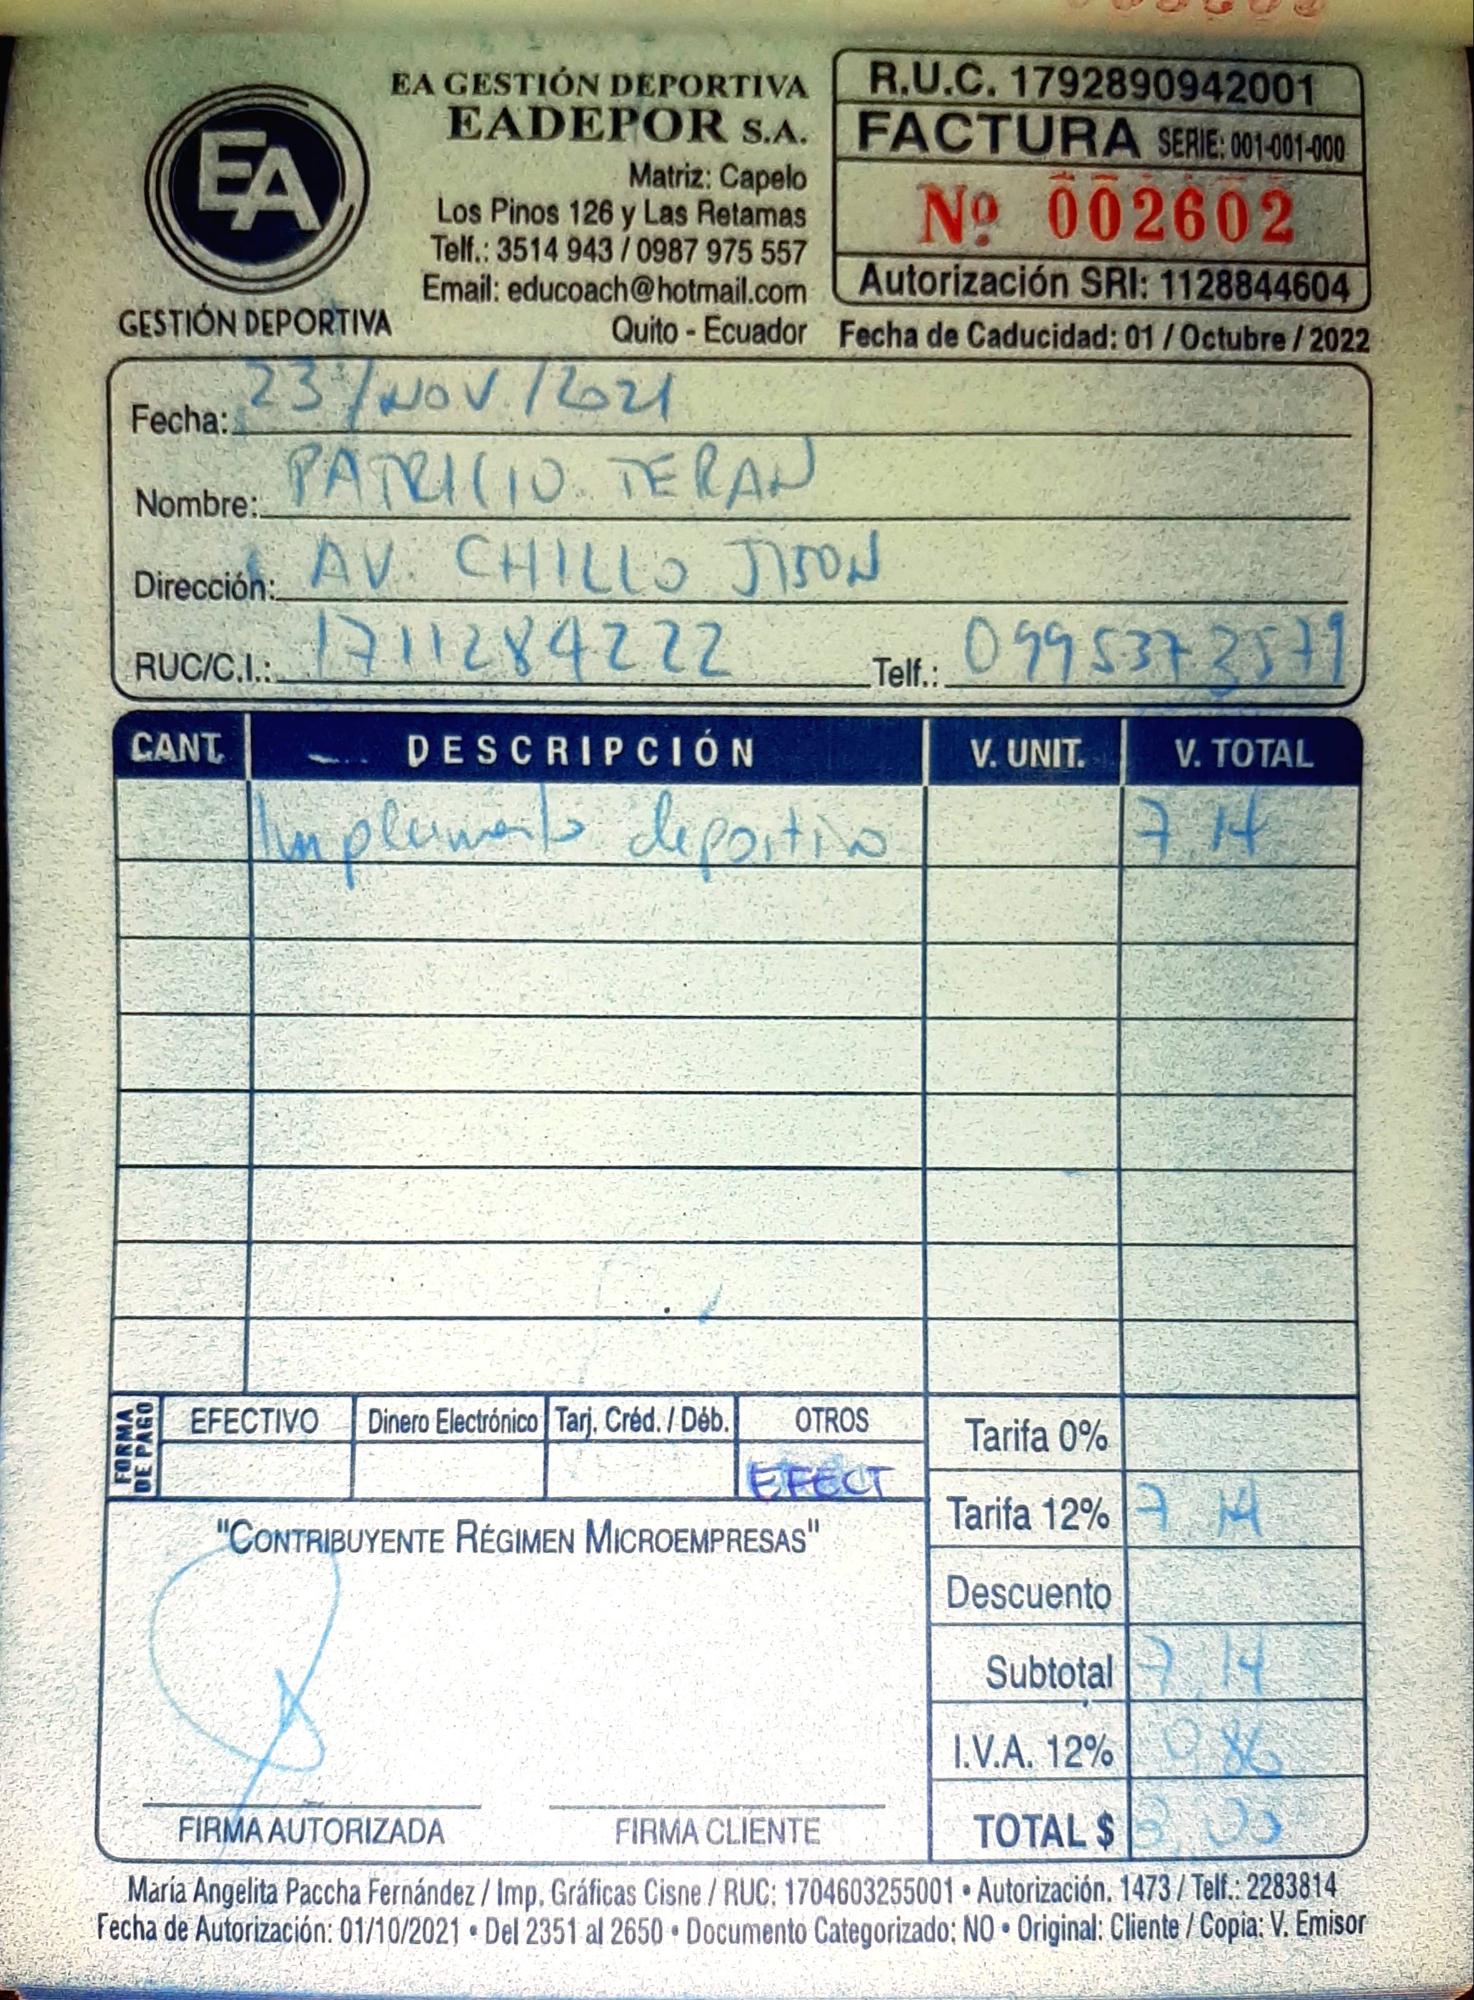 EA GESTIÓN DEPORTIVA
EADEPOR S.A.
Matriz: Capelo
Los Pinos 126 y Las Retamas
Telf.: 3514 943 / 0987 975 557
Email: educoach@hotmail.com
Quito - Ecuador
EA
GESTIÓN DEPORTIVA
R.U.C. 1792890942001
FACTURA SERIE: 001-001-000
Nº 002602
Autorización SRI: 1128844604
Fecha de Caducidad: 01 / Octubre / 2022
Fecha: 23/NOV./2021
Nombre: PATRICIO TERAN
Dirección: AV. CHILLO JIJON
RUC/C.I.: 1711284222 Telf.: 0995373579
CANT. DESCRIPCIÓN V. UNIT. V. TOTAL
Implemento deportivo 7.14
FORMA DE PAGO
EFECTIVO Dinero Electrónico Tarj. Créd. / Déb. OTROS
EFECT
Tarifa 0%
Tarifa 12% 7.14
Descuento
Subtotal 7.14
I.V.A. 12% 0.86
TOTAL $ 8.00
"CONTRIBUYENTE RÉGIMEN MICROEMPRESAS"
FIRMA AUTORIZADA FIRMA CLIENTE
María Angelita Paccha Fernández / Imp. Gráficas Cisne / RUC: 1704603255001 • Autorización. 1473 / Telf.: 2283814
Fecha de Autorización: 01/10/2021 • Del 2351 al 2650 • Documento Categorizado: NO • Original: Cliente / Copia: V. Emisor